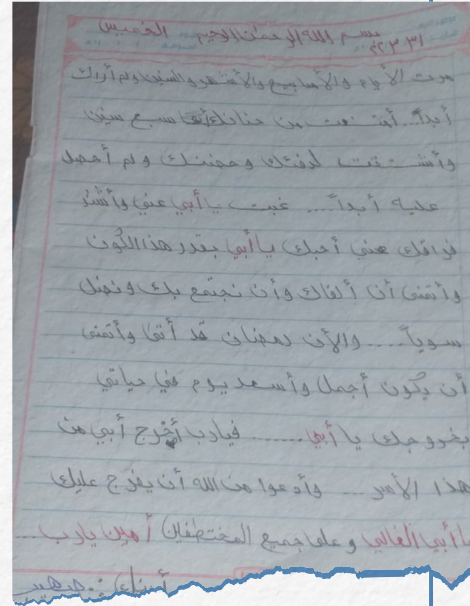 ٣١ ٢٠٢٣م بسم الله الرحمن الرحيم الخميس
مرت الأيام والأسابيع والأشهر والسنين ولم أراك
أبداً... من حنانك سبع سنين
وأشتقت لدفئك وحضنك ولم أحصل
عليه أبداً.... غبت يا أبي عني وأشتد
فراقك عني أحبك يا أبي بقدر هذا الكون
وأتمنى أن ألقاك وأن نجتمع بك ونضل
سوياً.... والأن رمضان قد أتى وأتمنى
أن يكون أجمل وأسعد يوم في حياتي
بخروجك يا أبي....... فيارب أخرج أبي من
هذا الأمر ... وأدعوا من الله أن يفرج عليك
يا أبي الغالي وعلى جميع المختطفين أمين يارب...